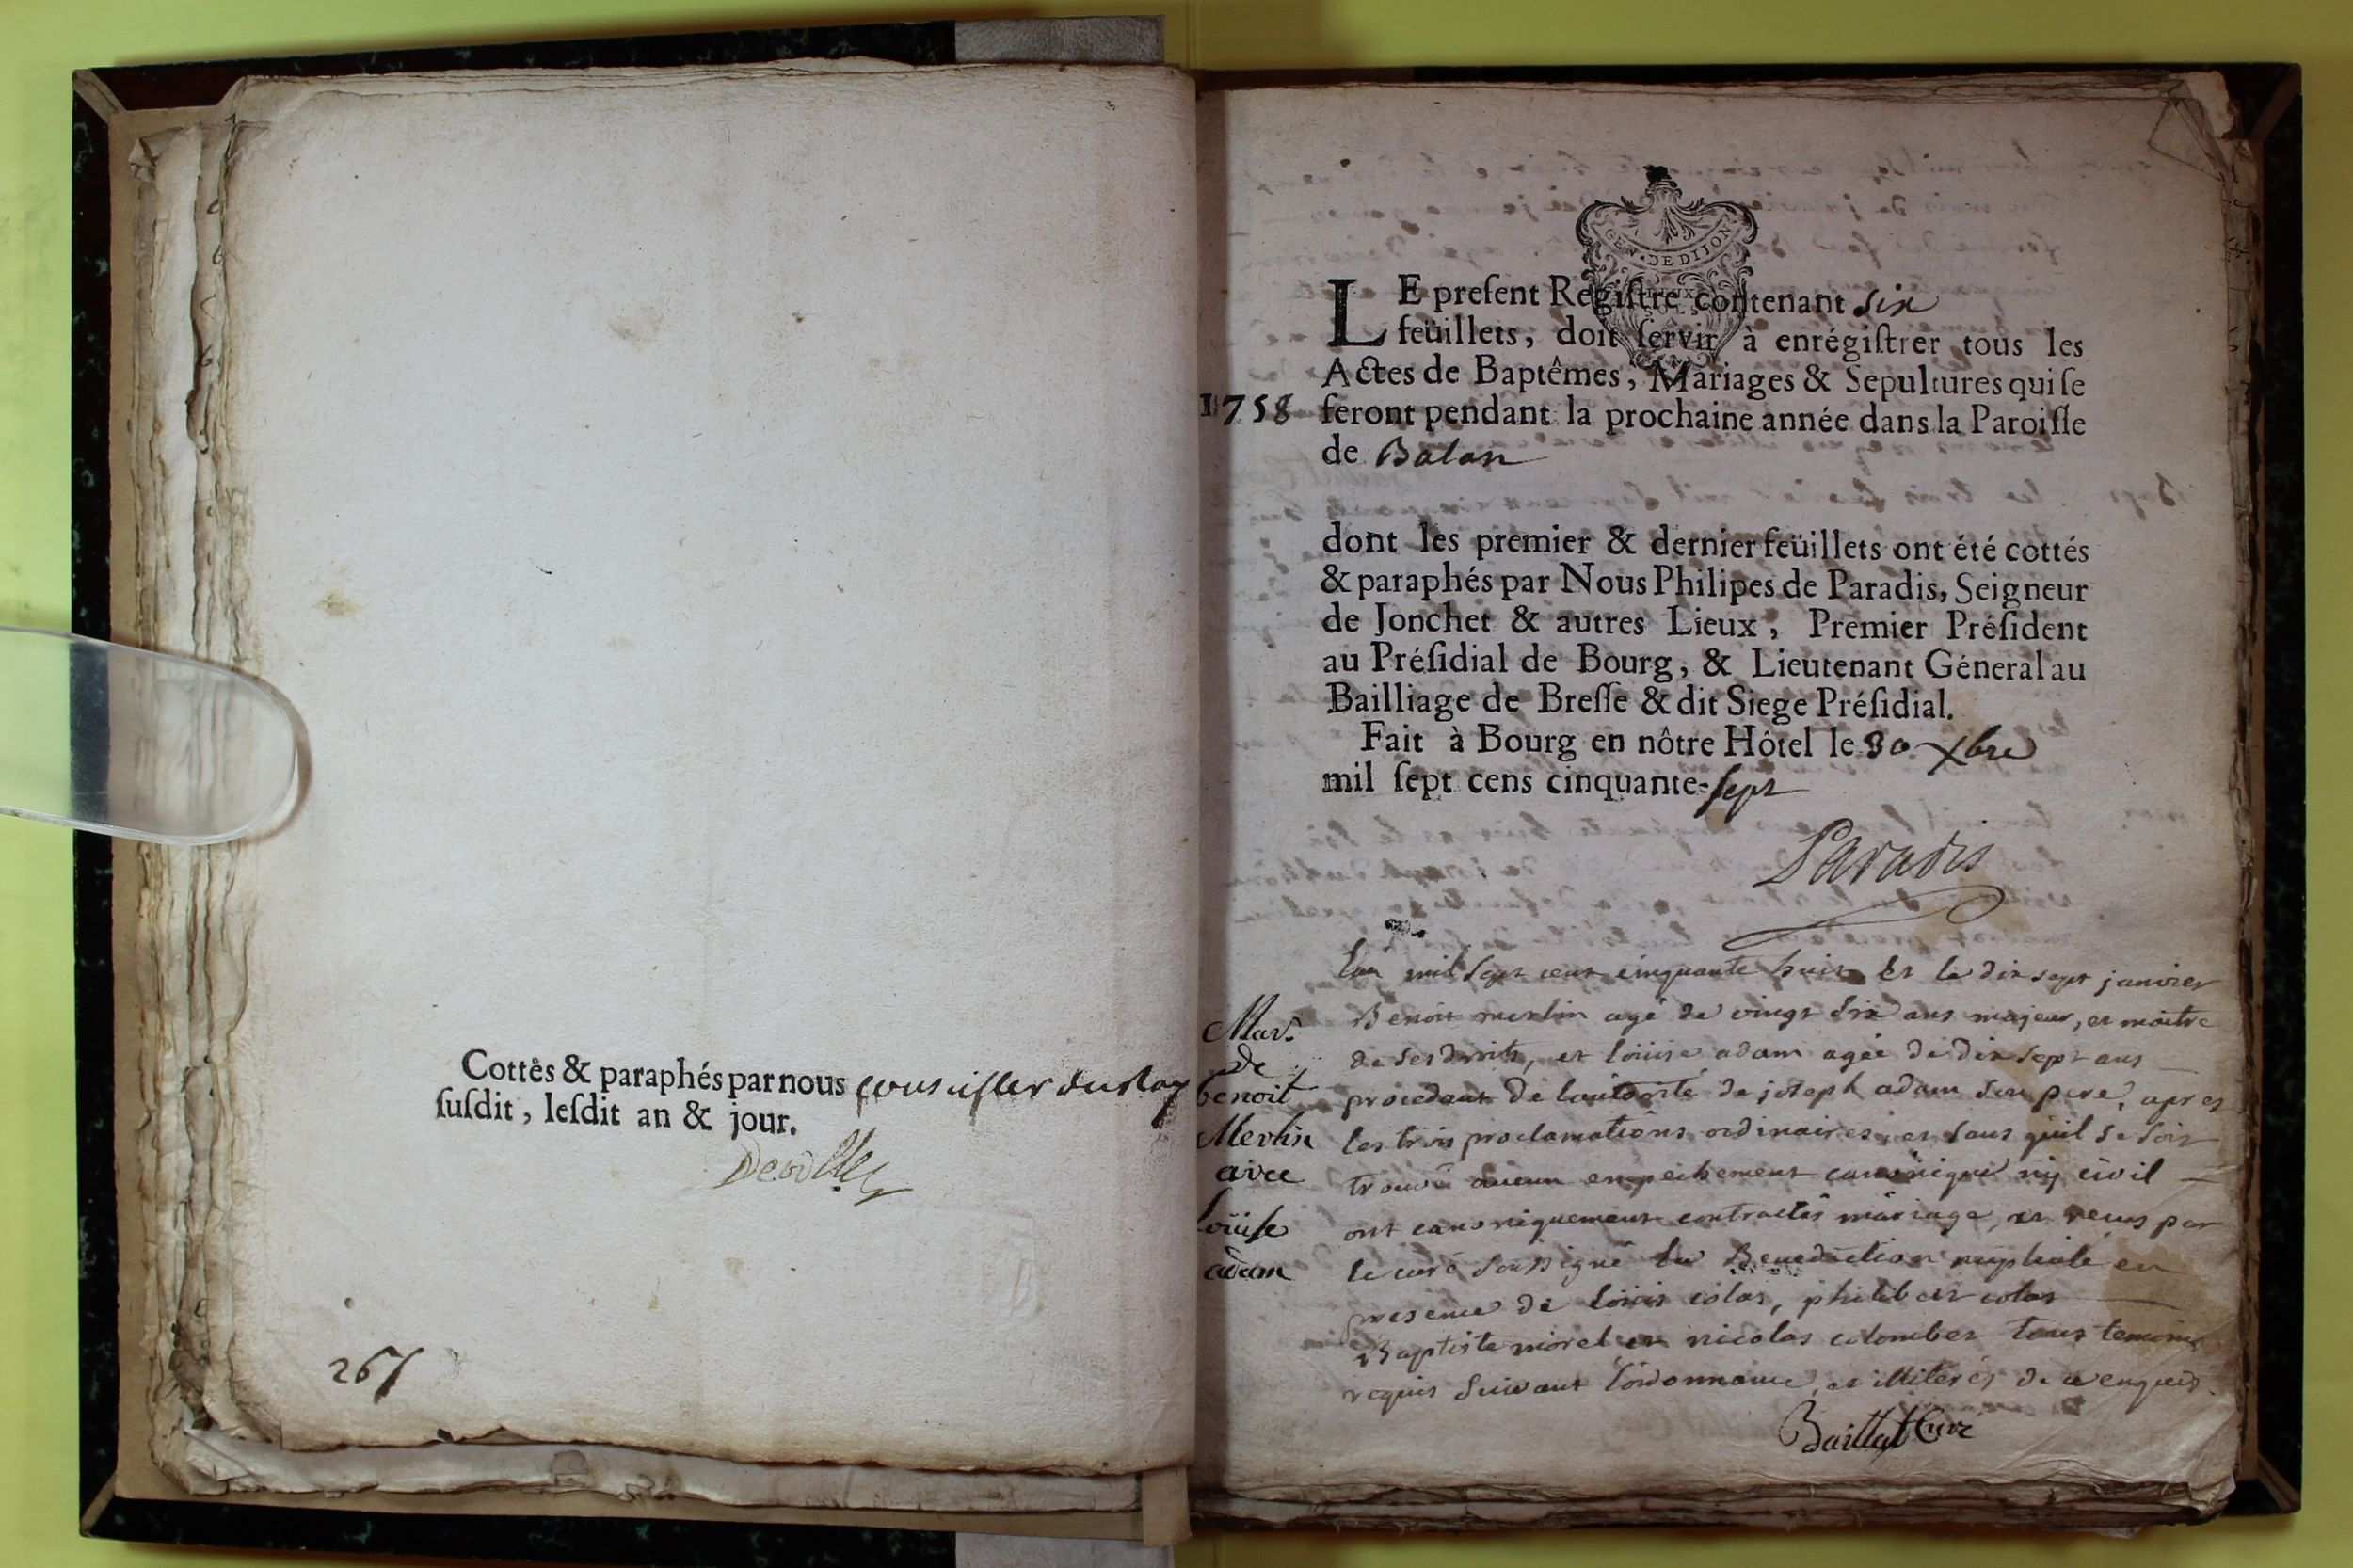 Cottés & paraphés par nous conseiller du Roy
susdit, lesdit an & jour.
267
GEN. DE DIJON
LE present Registre contenant six
feüillets, doit servir à enrégistrer tous les
Actes de Baptêmes, Mariages & Sepultures qui se
1758
feront pendant la prochaine année dans la Paroisse
de Balan
dont les premier & dernier feüillets ont été cottés
& paraphés par Nous Philipes de Paradis, Seigneur
de Jonchet & autres Lieux, Premier Président
au Présidial de Bourg, & Lieutenant Géneral au
Bailliage de Bresse & dit Siege Présidial.
Fait à Bourg en nôtre Hôtel le 30 Xbre
mil sept cens cinquante-sept
Paradis
Mar.
De
benoit
Merlin
avec
Loüise
adam
Lan mil sept cent cinquante huit et le dix sept janvier
Benoit merlin agé de vingt six ans majeur, et maitre
de ses droits, et loüise adam agée de dix sept ans
procedant de lautorité de joseph adam son pere, apres
les trois proclamations ordinaires, et sans quil se soit
trouvé aucun empechement canonique ny civil
ont canoniquement contractés màriage, et reçus par
le curé soussigné la Benediction nuptiale en
presence de loüis colas, philibert colas
Baptiste morel et nicolas colombet tous temoins
requis suivant lòrdonnance, et illiterés de ce enquis.
Baillat Curé